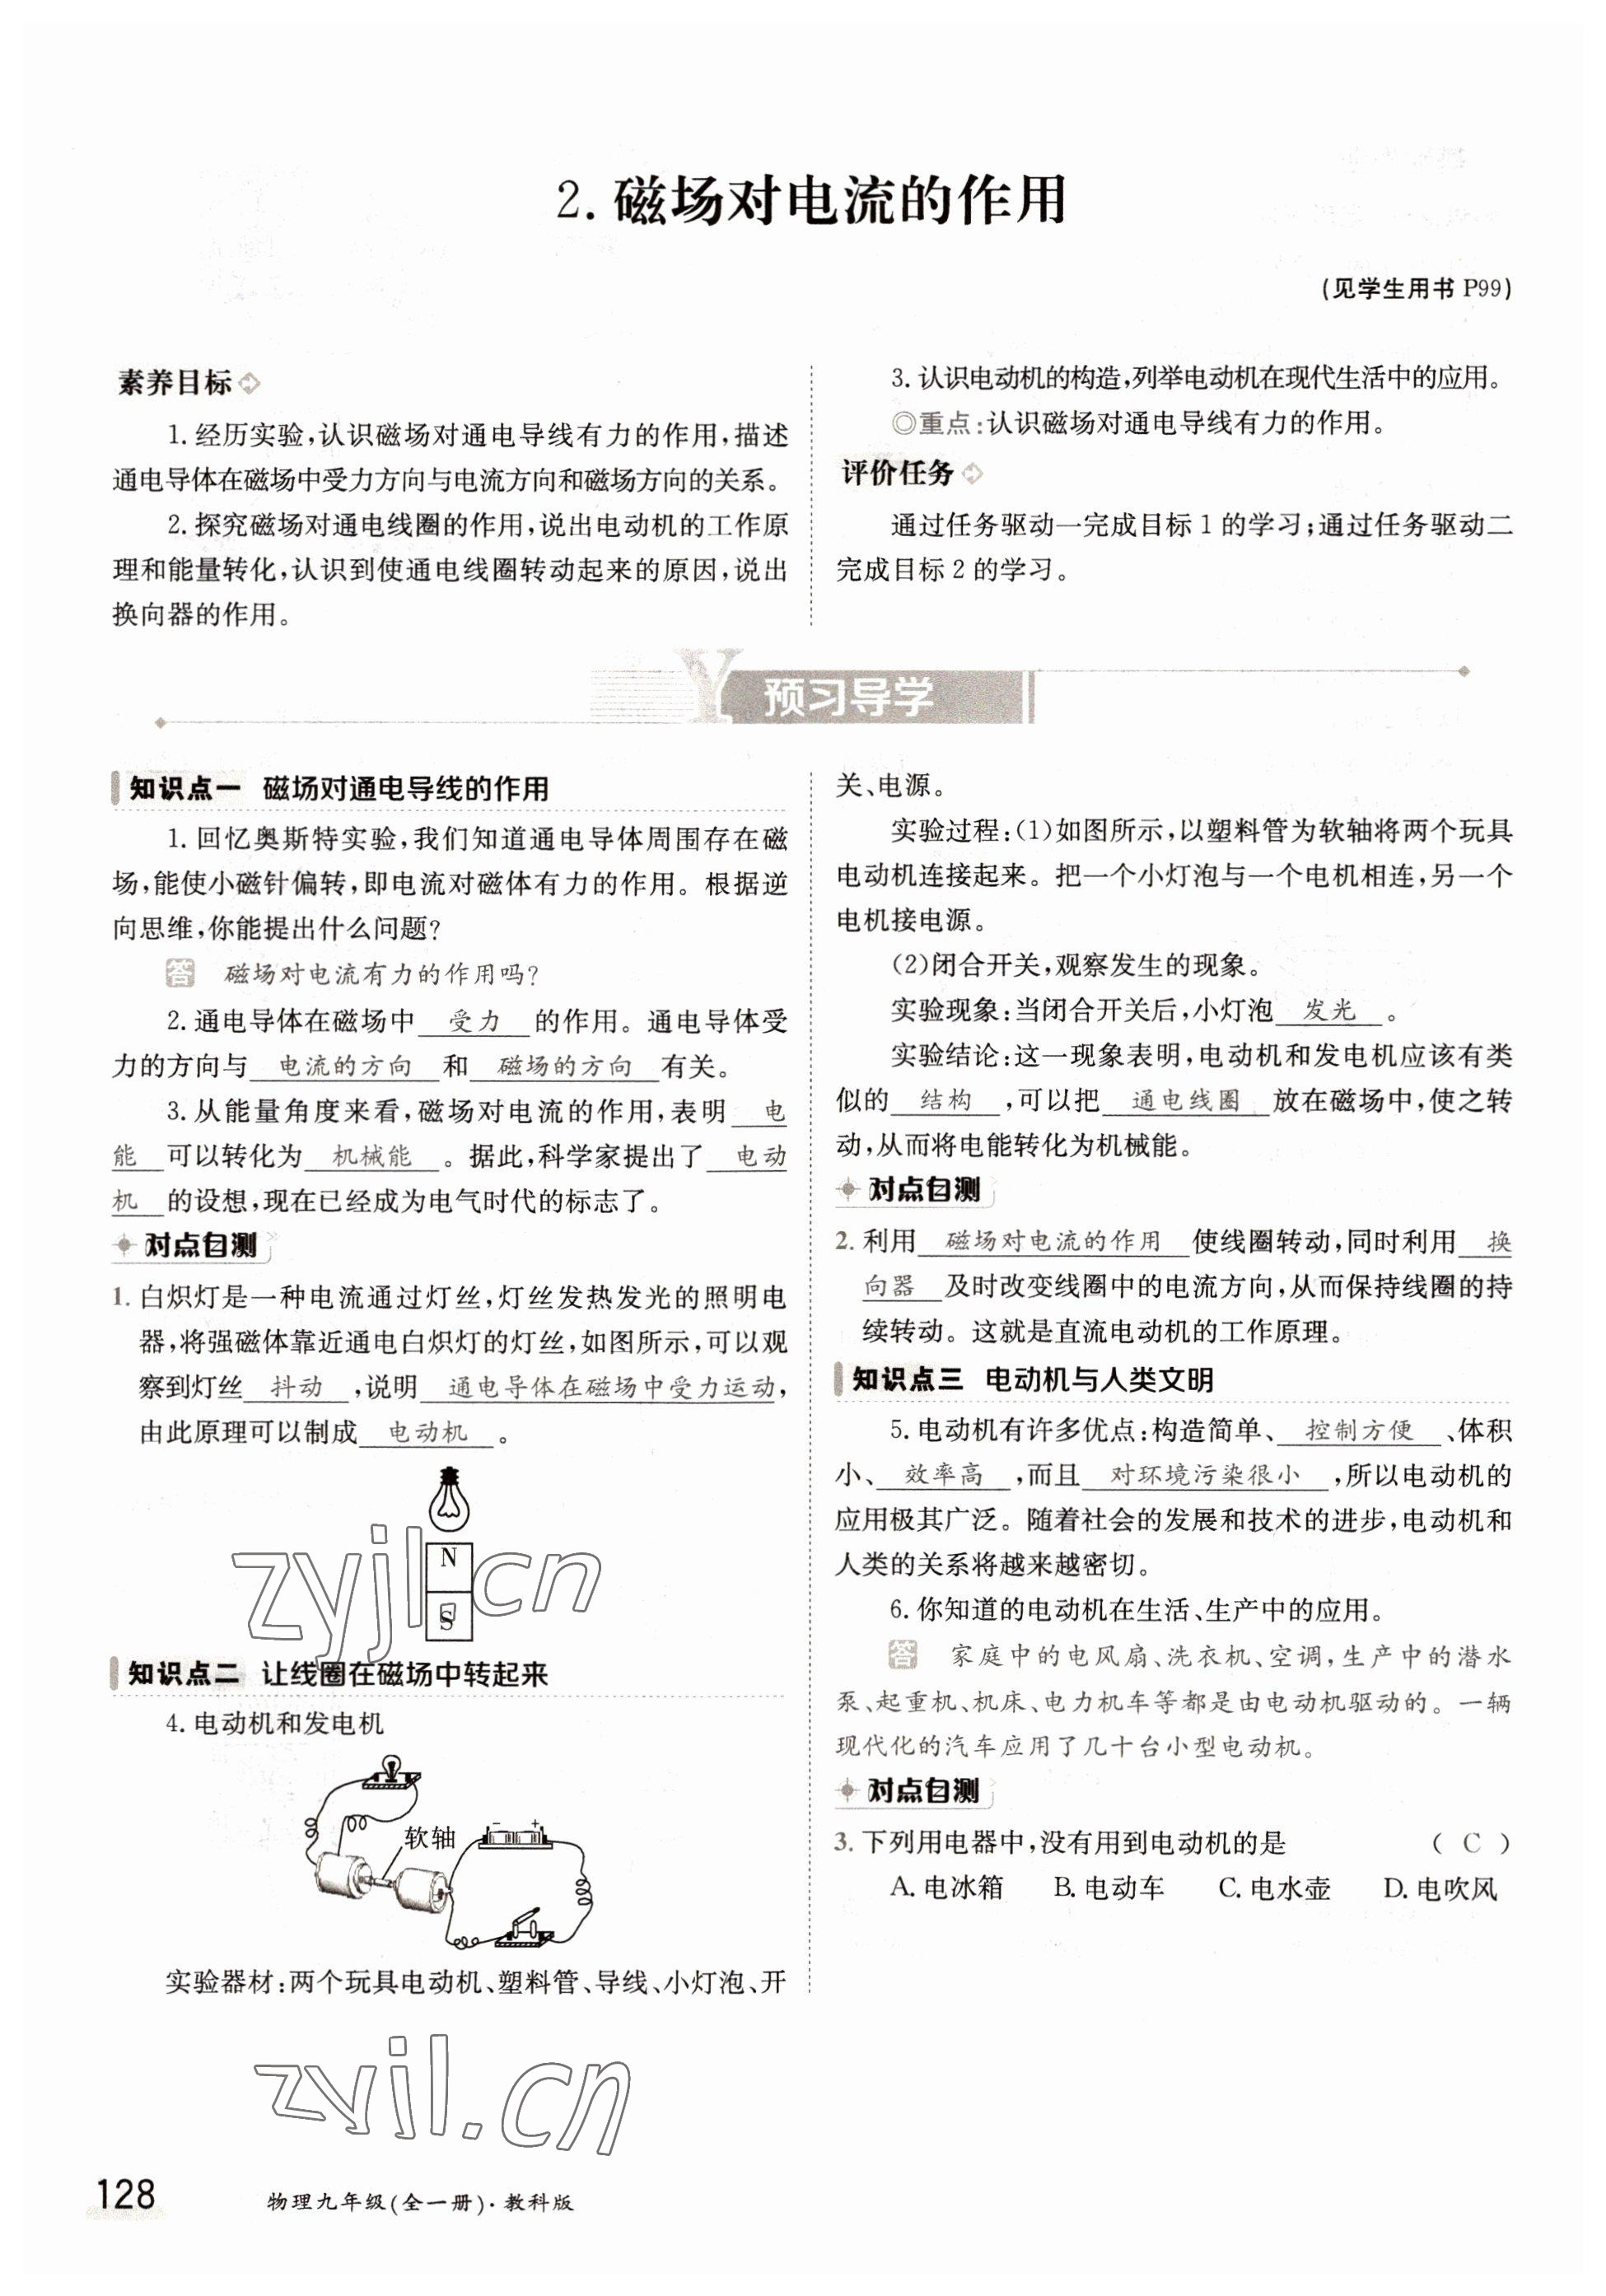 2. 磁场对电流的作用
(见学生用书 P99)
素养目标
1. 经历实验,认识磁场对通电导线有力的作用,描述
通电导体在磁场中受力方向与电流方向和磁场方向的关系。
2. 探究磁场对通电线圈的作用,说出电动机的工作原
理和能量转化,认识到使通电线圈转动起来的原因,说出
换向器的作用。
3. 认识电动机的构造,列举电动机在现代生活中的应用。
◎重点:认识磁场对通电导线有力的作用。
评价任务
通过任务驱动一完成目标 1 的学习;通过任务驱动二
完成目标 2 的学习。
预习导学
知识点一 磁场对通电导线的作用
1. 回忆奥斯特实验,我们知道通电导体周围存在磁
场,能使小磁针偏转,即电流对磁体有力的作用。根据逆
向思维,你能提出什么问题?
答 磁场对电流有力的作用吗?
2. 通电导体在磁场中 受力 的作用。通电导体受
力的方向与 电流的方向 和 磁场的方向 有关。
3. 从能量角度来看,磁场对电流的作用,表明 电
能 可以转化为 机械能 。据此,科学家提出了 电动
机 的设想,现在已经成为电气时代的标志了。
对点自测
1. 白炽灯是一种电流通过灯丝,灯丝发热发光的照明电
器,将强磁体靠近通电白炽灯的灯丝,如图所示,可以观
察到灯丝 抖动 ,说明 通电导体在磁场中受力运动,
由此原理可以制成 电动机 。
N
S
zyjl.cn
知识点二 让线圈在磁场中转起来
4. 电动机和发电机
软轴
- +
实验器材:两个玩具电动机、塑料管、导线、小灯泡、开
关、电源。
实验过程:(1)如图所示,以塑料管为软轴将两个玩具
电动机连接起来。把一个小灯泡与一个电机相连,另一个
电机接电源。
(2)闭合开关,观察发生的现象。
实验现象:当闭合开关后,小灯泡 发光 。
实验结论:这一现象表明,电动机和发电机应该有类
似的 结构 ,可以把 通电线圈 放在磁场中,使之转
动,从而将电能转化为机械能。
对点自测
2. 利用 磁场对电流的作用 使线圈转动,同时利用 换
向器 及时改变线圈中的电流方向,从而保持线圈的持
续转动。这就是直流电动机的工作原理。
知识点三 电动机与人类文明
5. 电动机有许多优点:构造简单、 控制方便 、体积
小、 效率高 ,而且 对环境污染很小 ,所以电动机的
应用极其广泛。随着社会的发展和技术的进步,电动机和
人类的关系将越来越密切。
6. 你知道的电动机在生活、生产中的应用。
答 家庭中的电风扇、洗衣机、空调,生产中的潜水
泵、起重机、机床、电力机车等都是由电动机驱动的。一辆
现代化的汽车应用了几十台小型电动机。
对点自测
3. 下列用电器中,没有用到电动机的是 ( C )
A. 电冰箱 B. 电动车 C. 电水壶 D. 电吹风
zyjl.cn
128
物理九年级(全一册)·教科版